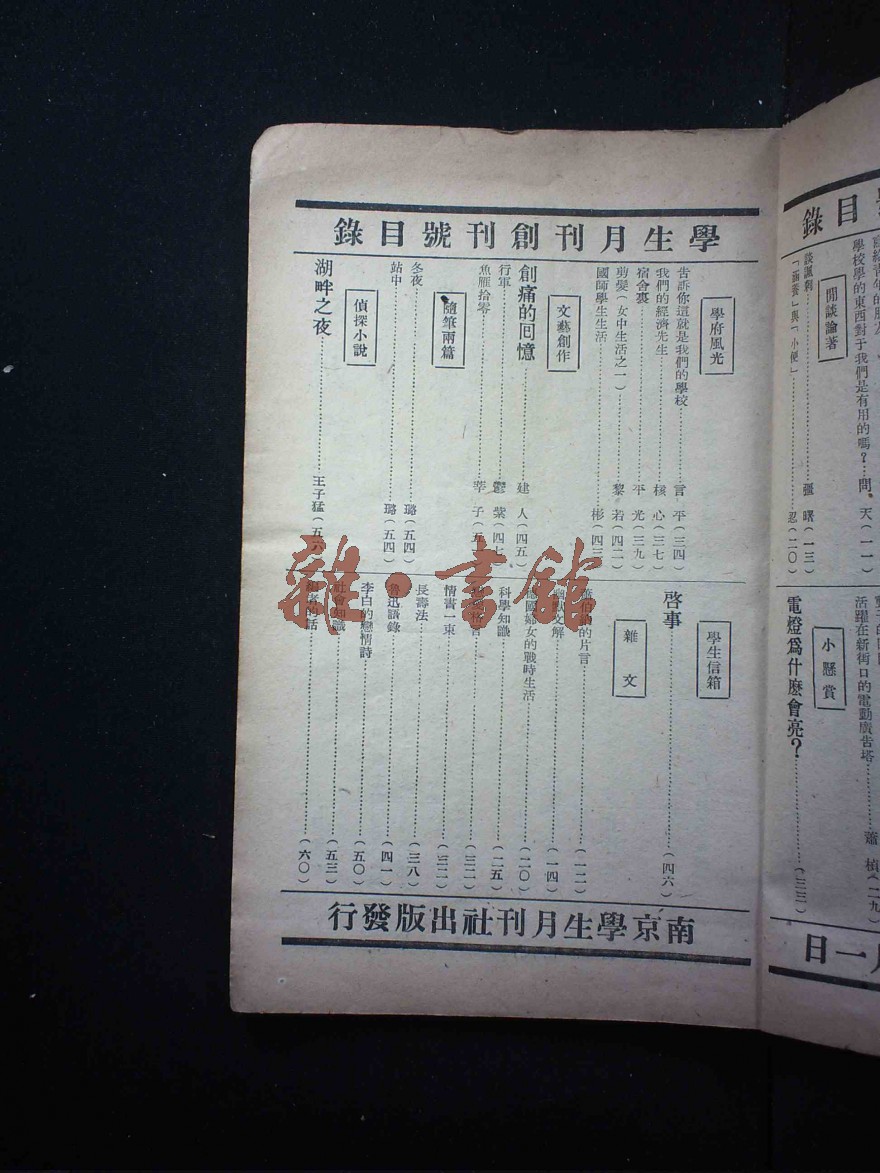 學生月刊創刊號目錄
學府風光
告訴你這就是我們的學校 言平(三四)
我們的經濟先生 核心(三七)
宿舍裏 平光(三九)
剪髮(女中生活之一) 黎若(四二)
國師學生生活 彬(四三)
文藝創作
創痛的囘憶 建人(四五)
行軍 紫(四七)
魚雁拾零 莘子(五
隨筆兩篇
冬夜 璐(五四)
站中 璐(五四)
偵探小說
湖畔之夜 王子猛(五六)
學生信箱
啓事 (四六)
雜文
的片言 (一二)
文解 (一四)
國婦女的戰時生活 (二〇)
科學知識 (二五)
(三二)
情書一束 (三二)
長壽法 (三八)
魯迅語錄 (四一)
李白的戀情詩 (五〇)
社會知識 (五三)
者的話 (六〇)
南京學生月刊社出版發行
目錄
學校學的東西對于我們是有用的嗎? 問天(一一)
閒談論著
談諷刺 彊曙(一三)
與「小便」 忍(二〇)
活躍在新街口的電動廣告塔 蕭楨(二九)
小懸賞
電燈爲什麼會亮? (三三)
月一日
雜·書館